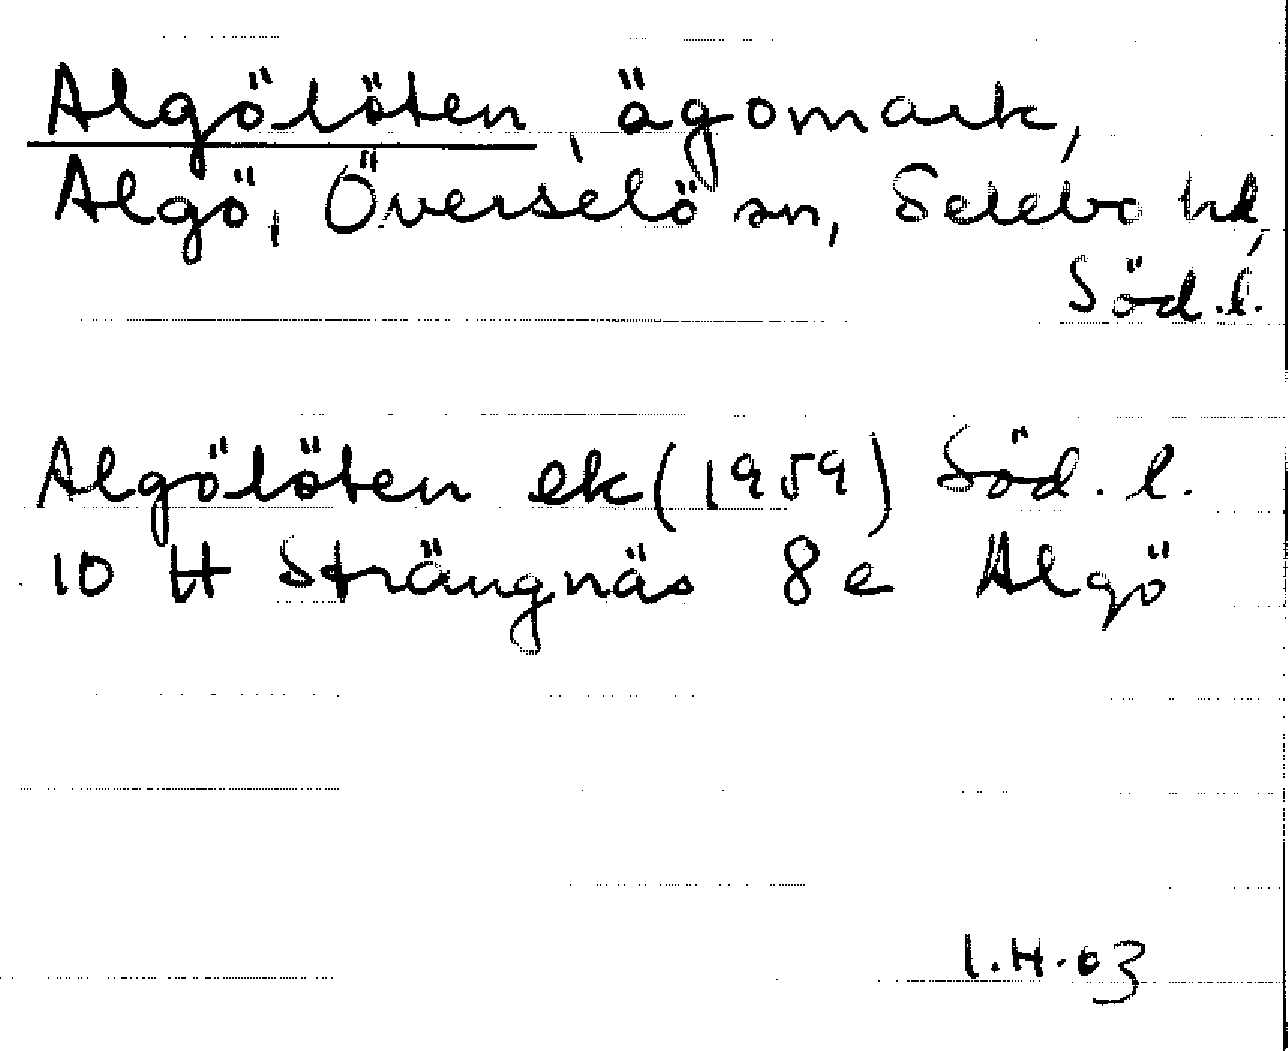 Algölöten, ägomark,
Algö, Överselö sn, Selebo hd,
Söd.l.
Algölöten ek (1959) Söd. l.
10 H Strängnäs 8e Algö
I.H.03